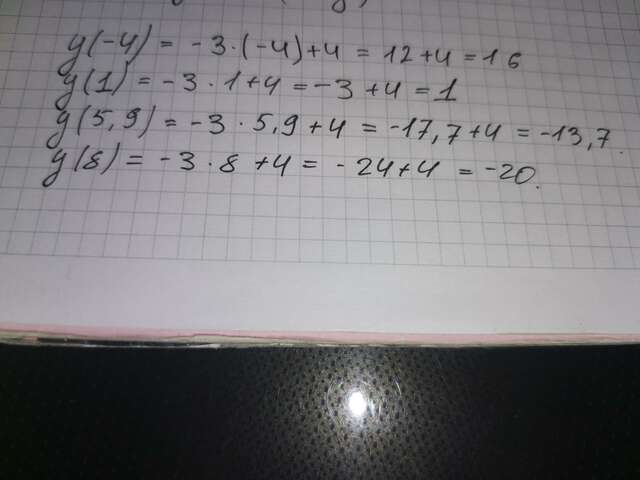 y(-4) = -3·(-4)+4 = 12+4 = 16
y(1) = -3·1+4 = -3+4 = 1
y(5,9) = -3·5,9+4 = -17,7+4 = -13,7.
y(8) = -3·8+4 = -24+4 = -20.